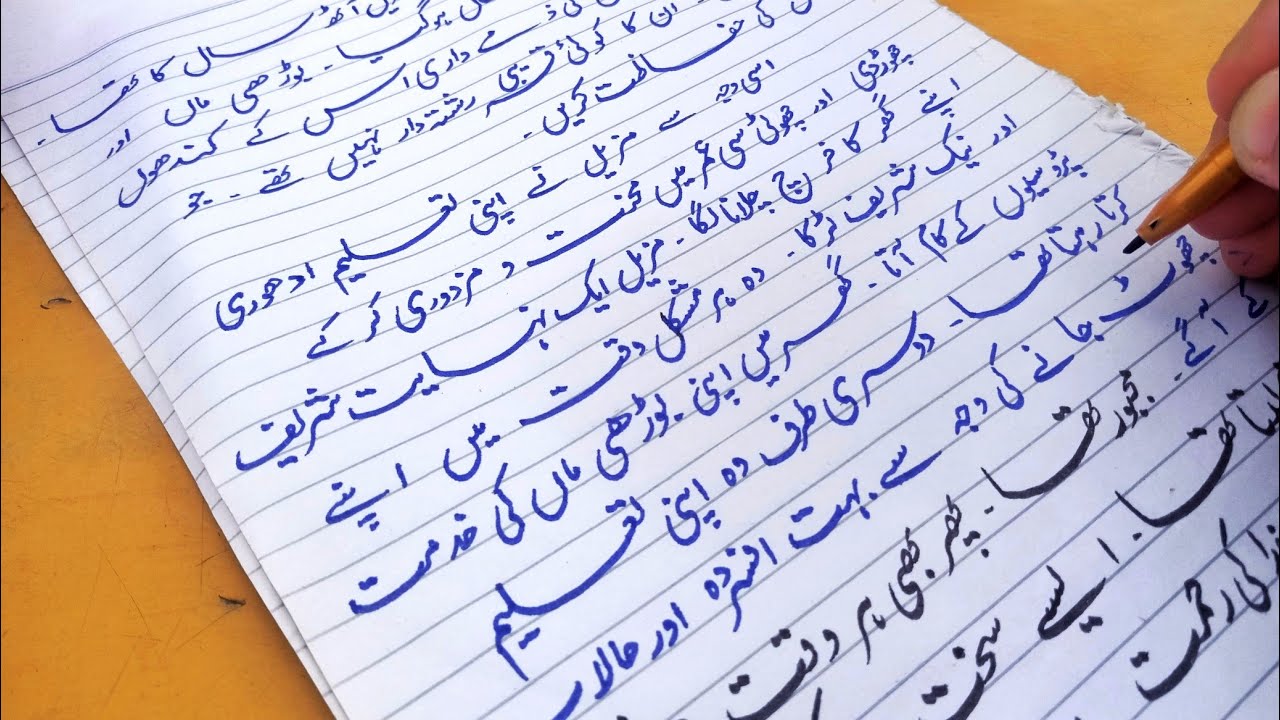 آٹھ سال کا تھا ۔
ہوگیا ۔ بوڑھی ماں اور
کی ذمے داری اس کے کندھوں
ان کا کوئی قریبی رشتہ دار نہیں تھے ۔ جو
کی حفاظت کریں ۔
اسی وجہ سے مزمل نے اپنی تعلیم ادھوری
چھوڑدی اور چھوٹی سی عمر میں محنت و مزدوری کر کے
اپنے گھر کا خرچ چلانا لگا ۔ مزمل ایک نہایت شریف
اور نیک شریف لڑکا ۔ وہ ہر مشکل وقت میں اپنے
پڑوسیوں کے کام آتا ۔ گھر میں اپنی بوڑھی ماں کی خدمت
کرتا رہتا تھا ۔ دوسری طرف وہ اپنی تعلیم
چھوٹ جانے کی وجہ سے بہت افسردہ اور حالات
کے آگے ۔ مجبور تھا ۔ پھر بھی ہر وقت
لیتا تھا ۔ ایسے سخت
خدا کی رحمت